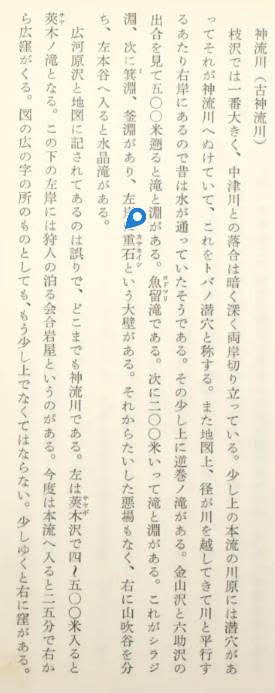 神流川（古神流川）
枝沢では一番大きく、中津川との落合は暗く深く両岸切り立っている。少し上の本流の川原には潜穴があ
ってそれが神流川へぬけていて、これをトバノ潜穴と称する。また地図上、径が川を越してきて川と平行す
るあたり右岸にあるので昔は水が通っていたそうである。その少し上に逆巻ノ滝がある。金山沢と六助沢の
出合を見て五〇〇米遡ると滝と淵がある。魚留滝である。次に二〇〇米いって滝と淵がある。これがシラジ
淵、次に箕淵、釜淵があり、左岸 重石という大壁がある。それからたいした悪場もなく、右に山吹谷を分
ち、左本谷へ入ると水晶滝がある。
広河原沢と地図に記されてあるのは誤りで、どこまでも神流川である。左は莢木沢で四〜五〇〇米入ると
莢木ノ滝となる。この下の左岸には狩人の泊る会合岩星というのがある。今度は本流へ入ると二五分で右か
ら広窪がくる。図の広の字の所のものとしても、もう少し上でなくてはならない。少しゆくと右に窪がある。